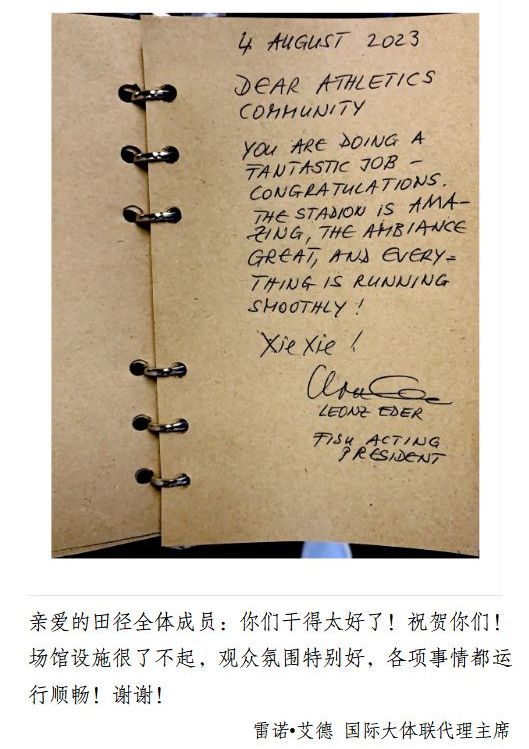 4 AUGUST 2023
DEAR ATHLETICS
COMMUNITY
YOU ARE DOING A
TANTASTIC JOB –
CONGRATULATIONS.
THE STADION IS AMA-
ZING, THE AMBIANCE
GREAT, AND EVERY=
THING IS RUNNING
SMOOTHLY !
Xie Xie !
LEONZ EDER
FISU ACTING
PRESIDENT
亲爱的田径全体成员：你们干得太好了！祝贺你们！
场馆设施很了不起，观众氛围特别好，各项事情都运
行顺畅！谢谢！
雷诺•艾德 国际大体联代理主席